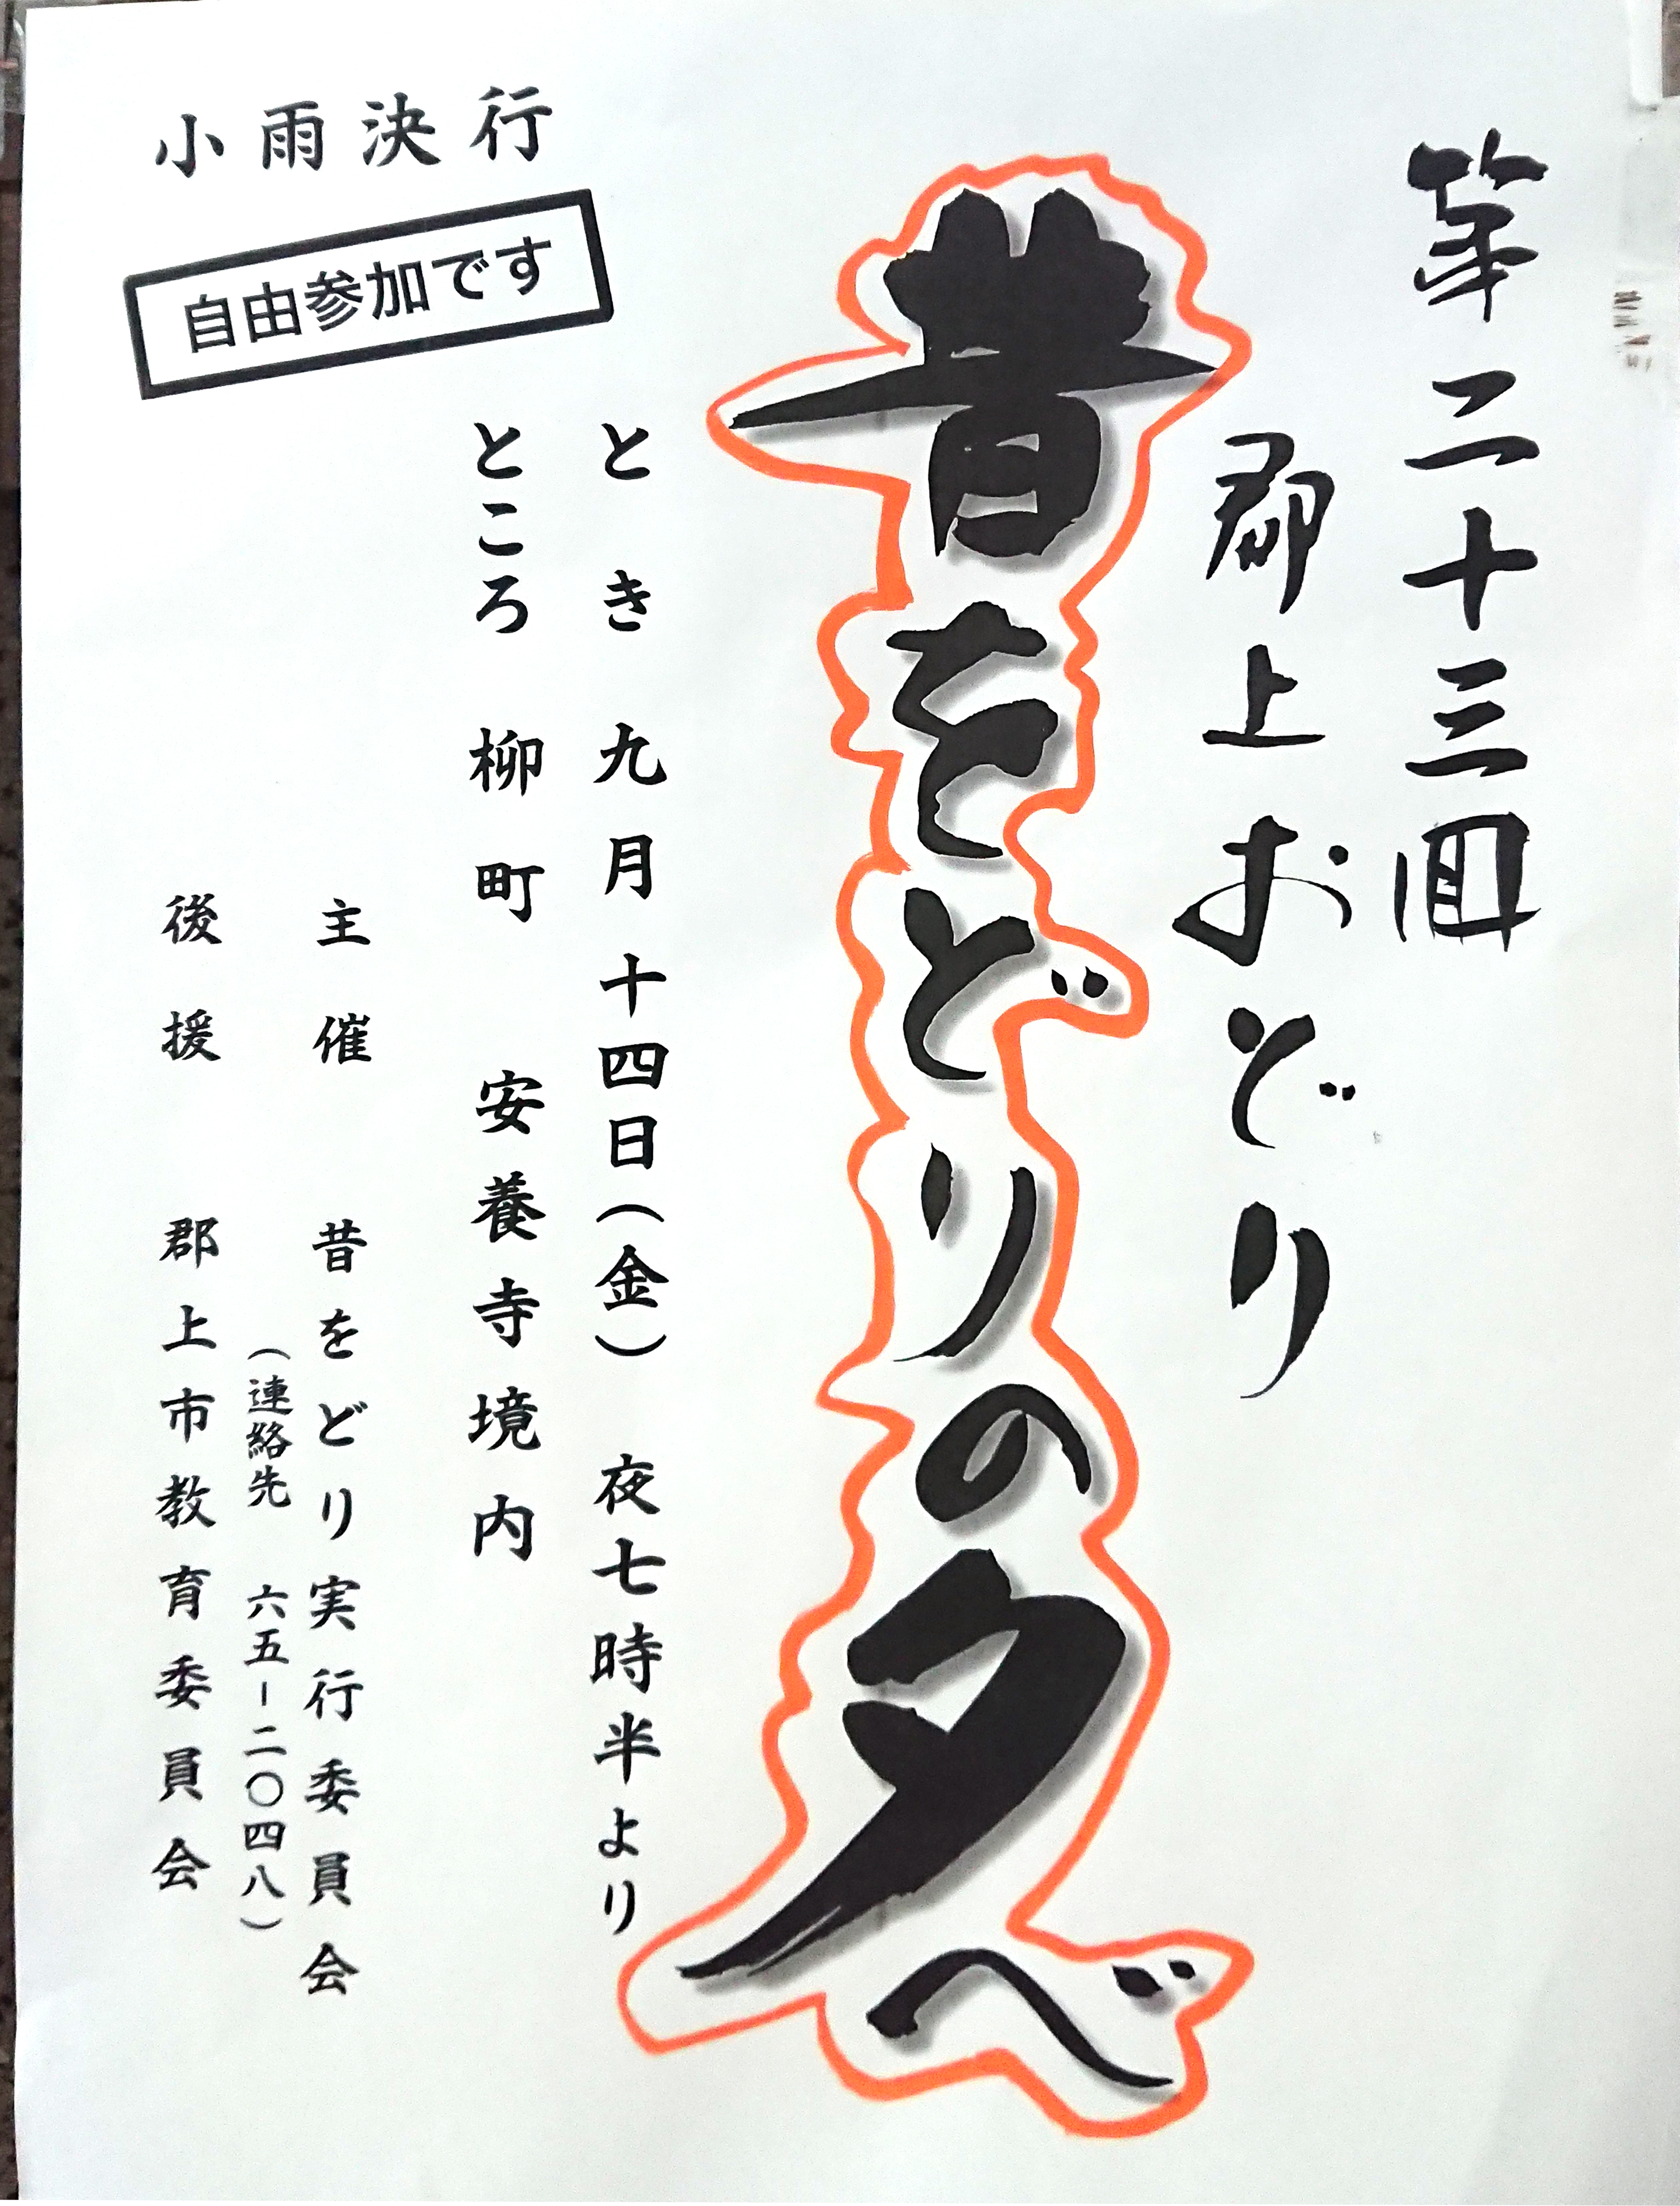 第二十三回
郡上おどり
昔をどりの夕べ
とき 九月十四日（金） 夜七時半より
ところ 柳町 安養寺境内
小雨決行
自由参加です
主催 昔をどり実行委員会
（連絡先 六五－二〇四八）
後援 郡上市教育委員会